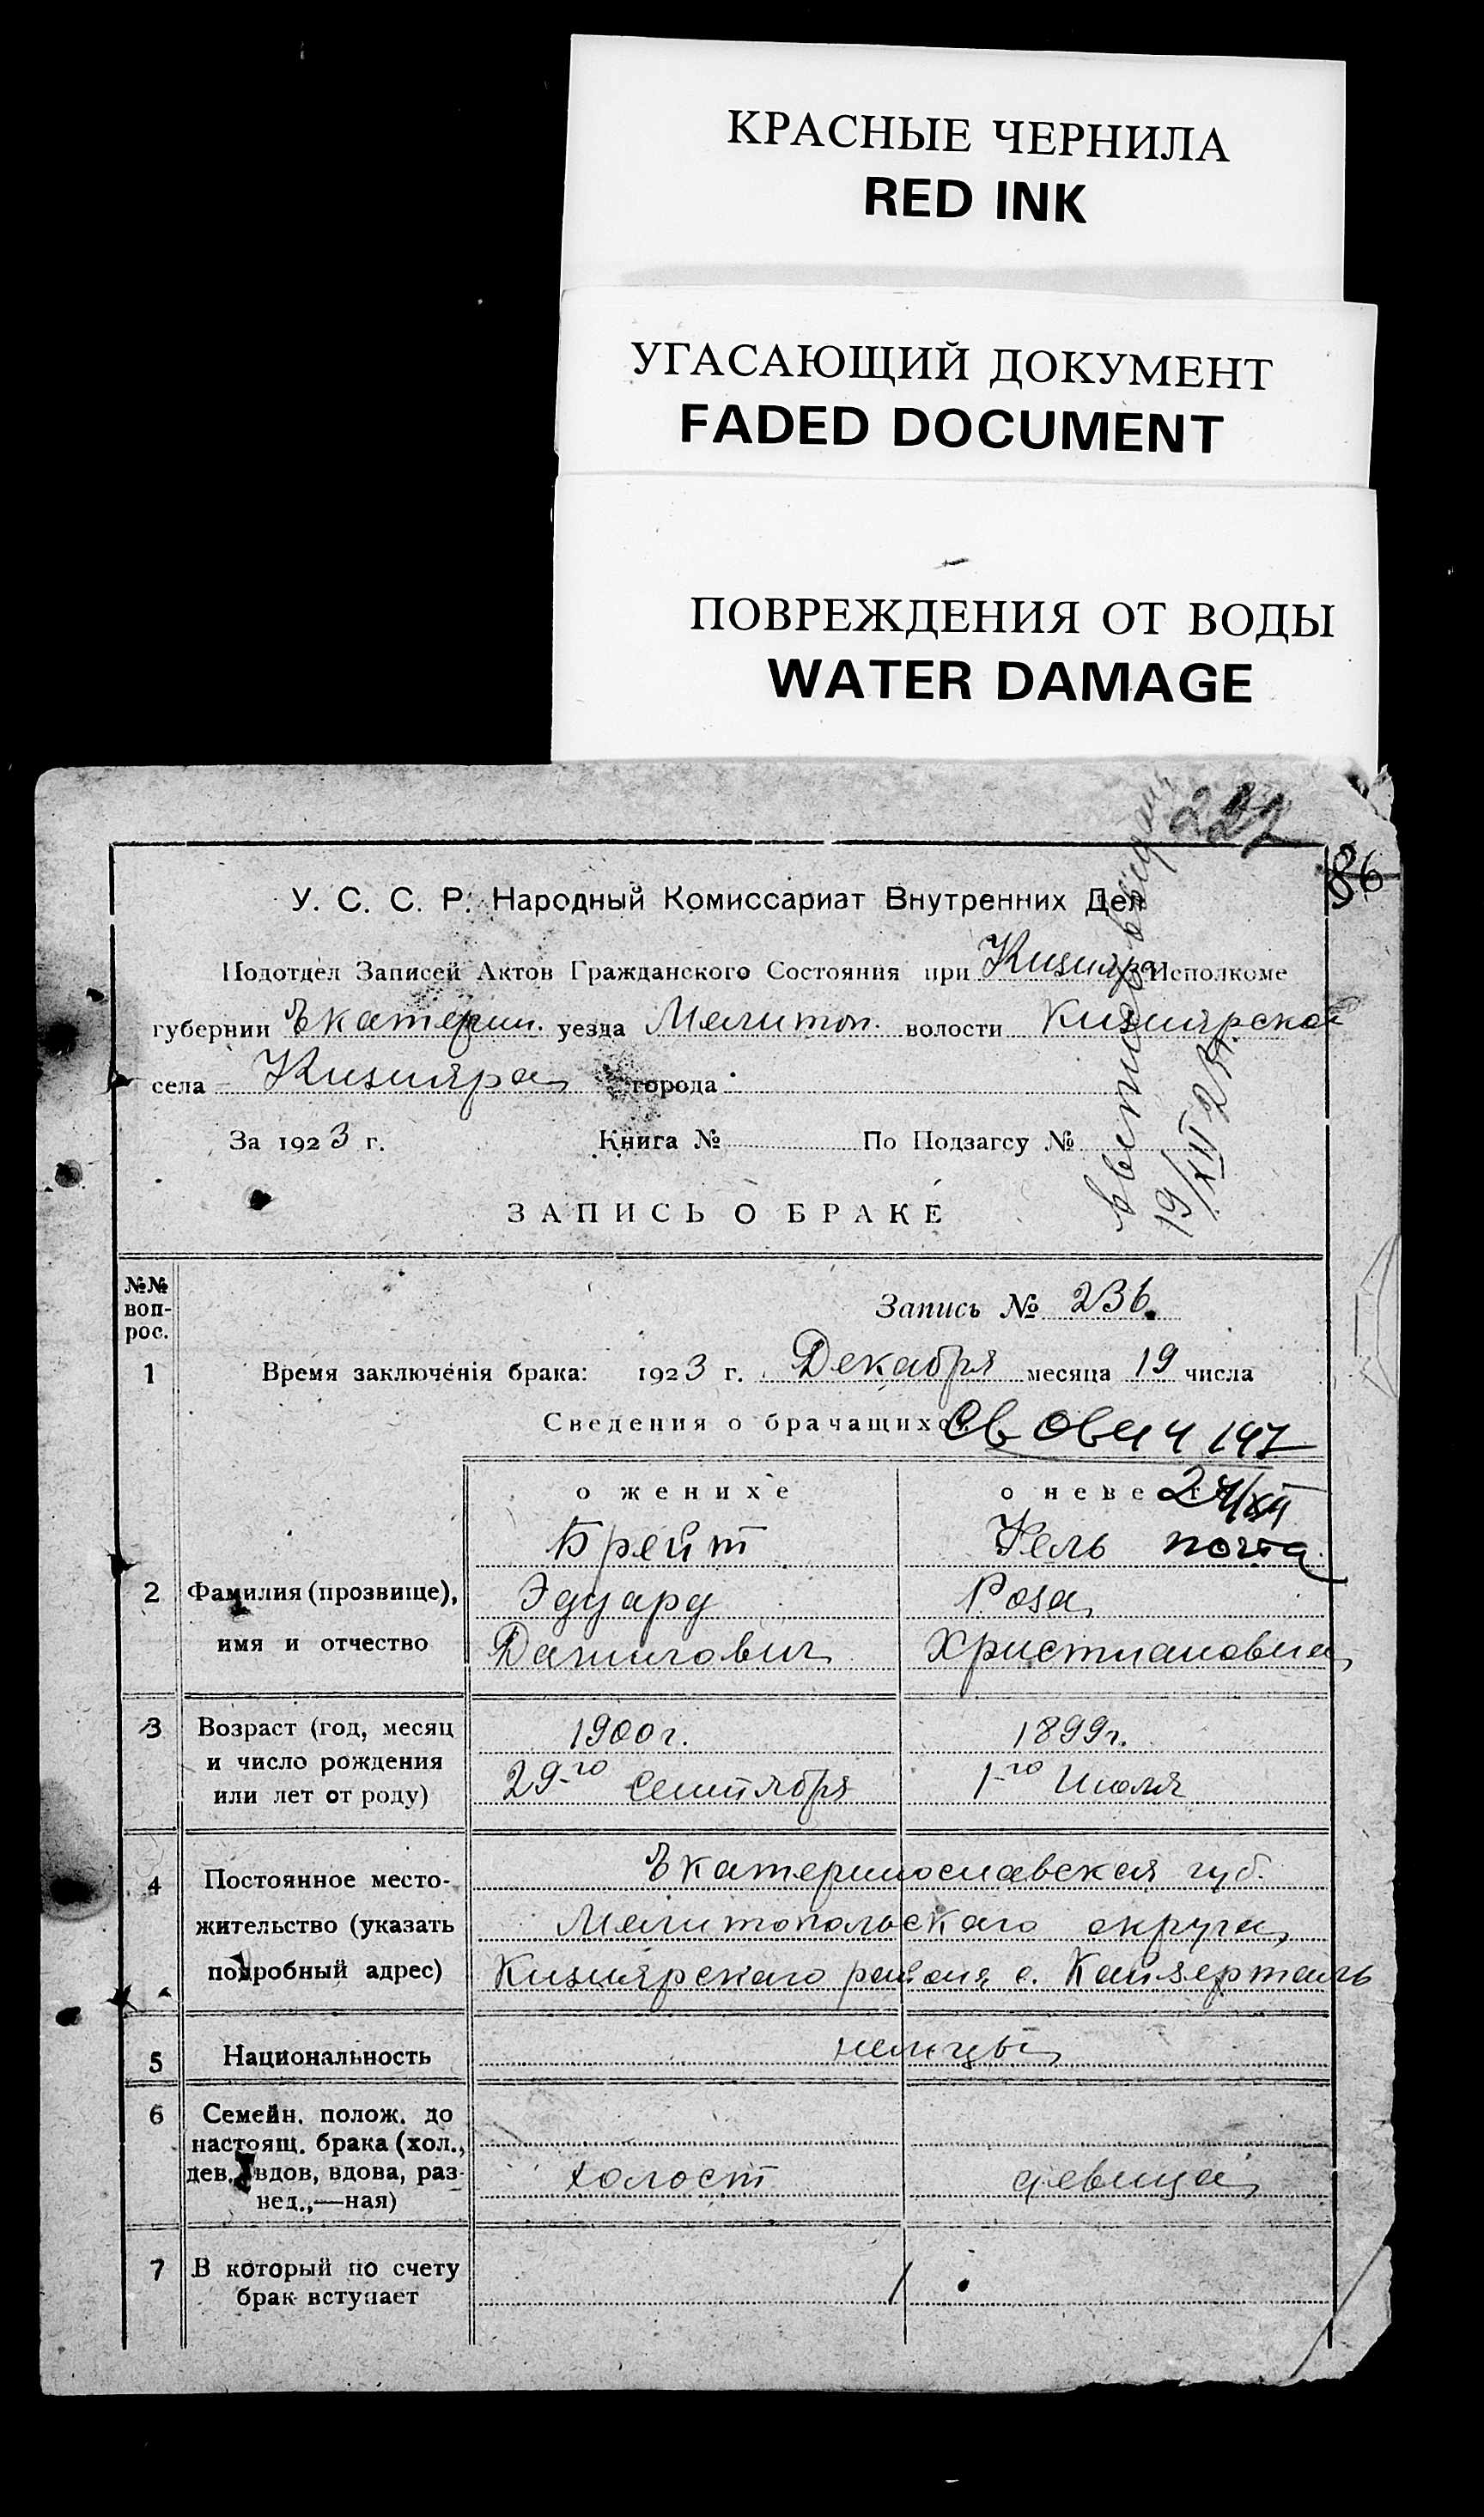 КРАСНЫЕ ЧЕРНИЛА
RED INK
УГАСАЮЩИЙ ДОКУМЕНТ
FADED DOCUMENT
ПОВРЕЖДЕНИЯ ОТ ВОДЫ
WATER DAMAGE
227
86
У. С. С. Р. Народный Комиссариат Внутренних Дел
Подотдел Записей Актов Гражданского Состояния при Кизияр. Исполкоме
губернии Екатерин. уезда Мелитоп. волости Кизиярской
села Кизияра города
За 1923 г. Книга № По Подзагсу №
19/XII 23 г.
ЗАПИСЬ О БРАКЕ
№№ воп-рос.
Запись № 236.
1 Время заключенія брака: 1923 г. Декабря месяца 19 числа
Сведения о брачащихся
147
о женихе о невесте
24/XII
Брейт Кель почта
2 Фамилия (прозвище), Эдуард Роза
имя и отчество Данилович Христиановна
3 Возраст (год, месяц 1900 г. 1899 г.
и число рождения
или лет от роду) 29-го Сентября 1-го Июля
Екатеринославская губ.
4 Постоянное место-
жительство (указать Мелитопольскаго округа,
подробный адрес) Кизиярскаго района с. Кайзерталь
5 Национальность немцы
6 Семейн. полож. до
настоящ. брака (хол.,
дев., вдов, вдова, раз- холост девица
вед.,—ная)
7 В который по счету
брак вступает 1